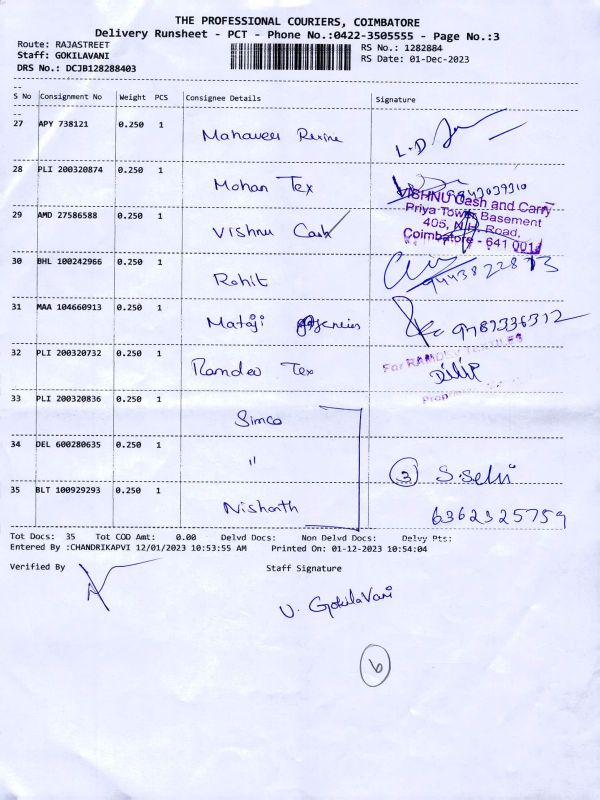 THE PROFESSIONAL COURIERS, COIMBATORE
Delivery Runsheet - PCT - Phone No.:0422-3505555 - Page No.:3
Route: RAJASTREET
RS No.: 1282884
Staff: GOKILAVANI
RS Date: 01-Dec-2023
DRS No.: DCJB128288403
S No Consignment No Weight PCS Consignee Details Signature
27 APY 738121 0.250 1 Mahaveer Rexine L.D
28 PLI 200320874 0.250 1 Mohan Tex
29 AMD 27586588 0.250 1 Vishnu Cash
VISHNU Cash and Carry
Priya Tower Basement
405, N.H. Road,
Coimbatore - 641 001
30 BHL 100242966 0.250 1 Rohit
31 MAA 104660913 0.250 1 Mataji Agencies 9487336312
32 PLI 200320732 0.250 1 Ramdev Tex
For RAMDEV TEXTILES
Dilip
33 PLI 200320836 0.250 1 Simco
34 DEL 600280635 0.250 1 " 3 S.Selvi
35 BLT 100929293 0.250 1 Nishanth 6362325759
Tot Docs: 35 Tot COD Amt: 0.00 Delvd Docs: Non Delvd Docs: Delvy Pts:
Entered By :CHANDRIKAPVI 12/01/2023 10:53:55 AM Printed On: 01-12-2023 10:54:04
Verified By Staff Signature
V. GokilaVani
6